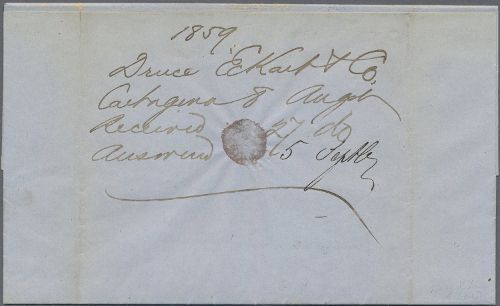 1859.
Druce Eckart & Co.
Cartagena 8 Augst
Received 27 do
Answered 5 Septbr